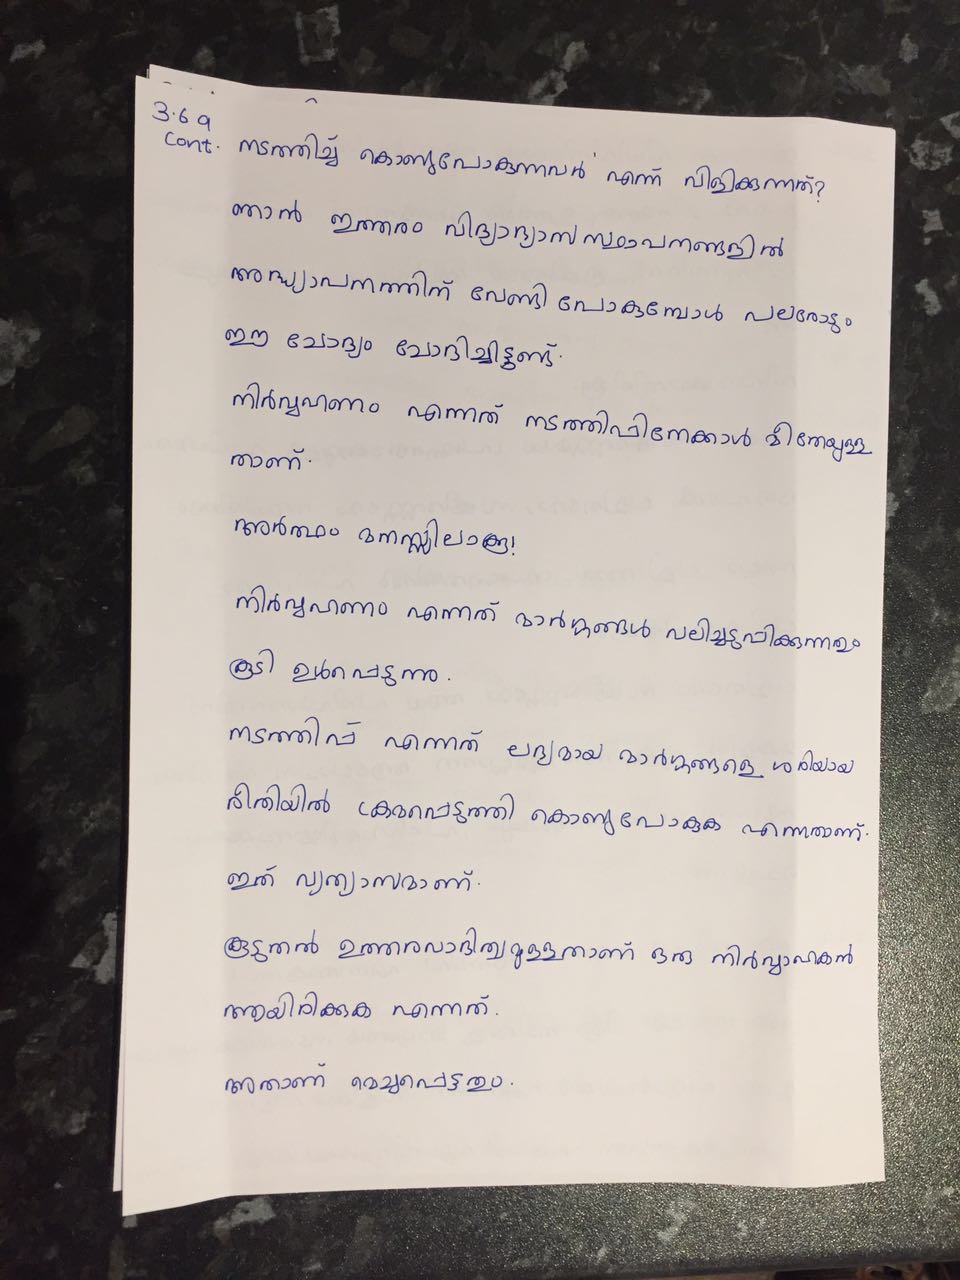 3.6 a
Cont. നടത്തിച്ച് കൊണ്ടുപോകുന്നവർ' എന്ന് വിളിക്കുന്നത്?
ഞാൻ ഇത്തരം വിദ്യാഭ്യാസ സ്ഥാപനങ്ങളിൽ
അദ്ധ്യാപനത്തിന് വേണ്ടി പോകുമ്പോൾ പലരോടും
ഈ ചോദ്യം ചോദിച്ചിട്ടുണ്ട്.
നിർവ്വഹണം എന്നത് നടത്തിപ്പിനേക്കാൾ മീതേയുള്ള
താണ്.
അർത്ഥം മനസ്സിലാക്കൂ!
നിർവ്വഹണം എന്നത് മാർഗ്ഗങ്ങൾ വലിച്ചടുപ്പിക്കുന്നതും
കൂടി ഉൾപ്പെടുന്നു.
നടത്തിപ്പ് എന്നത് ലഭ്യമായ മാർഗ്ഗങ്ങളെ ശരിയായ
രീതിയിൽ ക്രമപ്പെടുത്തി കൊണ്ടുപോകുക എന്നതാണ്.
ഇത് വ്യത്യാസമാണ്.
കൂടുതൽ ഉത്തരവാദിത്വമുള്ളതാണ് ഒരു നിർവ്വാഹകൻ
ആയിരിക്കുക എന്നത്.
അതാണ് മെച്ചപ്പെട്ടതും.